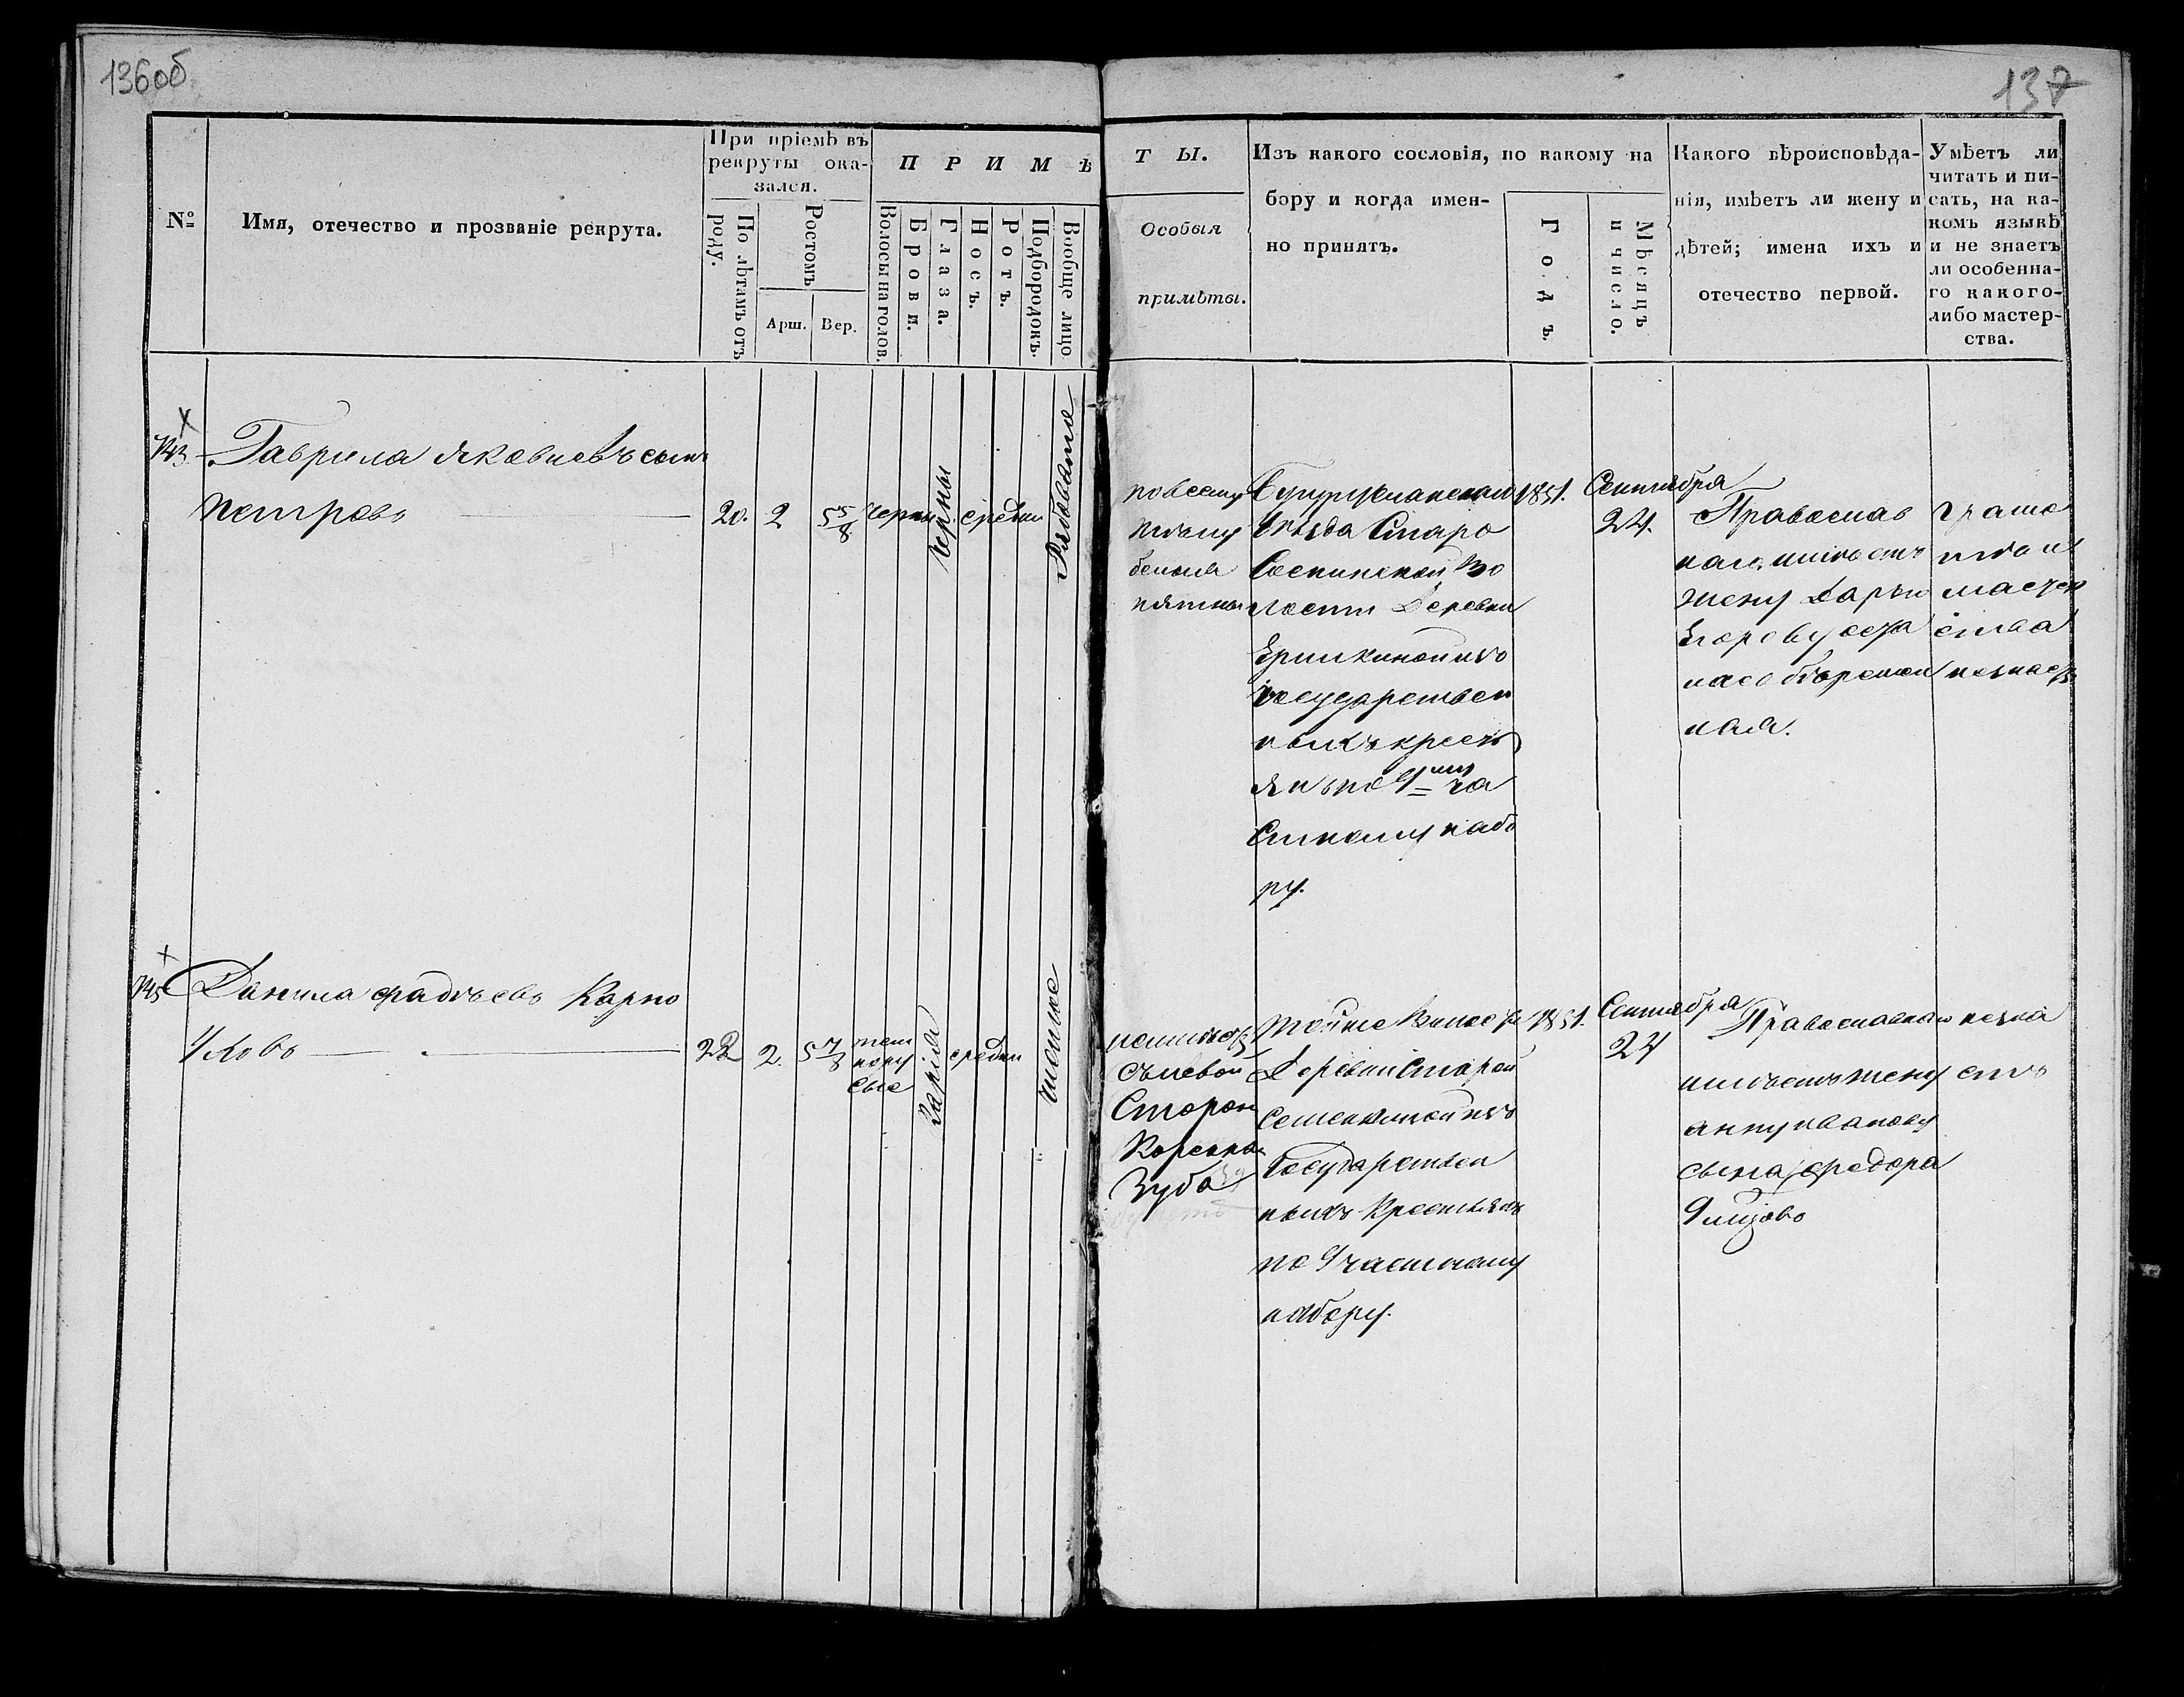 136об
137
№
Имя, отечество и прозваніе рекрута.
При пріемѣ въ
рекруты ока-
зался.
По лѣтамъ отъ
роду.
Ростомъ
Арш. Вер.
П Р И М Ѣ
Волосы на голов.
Брови.
Глаза.
Носъ.
Ротъ.
Подбородокъ.
Вообще лицо
Т Ы.
Особыя
примѣты.
Изъ какого сословія, по какому на
бору и когда имен-
но принятъ.
Годъ.
Мѣсяцъ
и число.
Какого вѣроисповѣда-
нія, имѣетъ ли жену и
дѣтей; имена ихъ и
отечество первой.
Умѣетъ ли
читать и пи-
сать, на ка-
комъ языкѣ
и не знаетъ
ли особенна-
го какого-
либо мастер-
ства.
Гаврила Яковлевъ сынъ
Петровъ
20. 2 5 5/8
черны
черны
средни
Рябовато
по всему
тѣлу
белыя
пятны
Бугурусланскаго
Уезда Старо
волости Деревни
государствен
ныхъ кресть
янъ по 9 ча
стному набо
ру.
1851.
Сентября
24.
Православ
наго, имѣетъ
жену Дарью
Егорову
беремен
ная.
грамо
тѣ и
мастер
ства
незнаетъ
Данила Фадѣевъ Карпо
2. 5 7/8
тем
нору
сые
Каріе
средни
чисто
съ левой
Сторон
Кореннаго
Зуба
Тойже
Деревни Старой
Государствен
ныхъ Крестьянъ
по 9 частному
набору.
1851.
Сентября
24
Православнаго
имѣетъ жену
Анну Иванову
сына Федора
незна
етъ